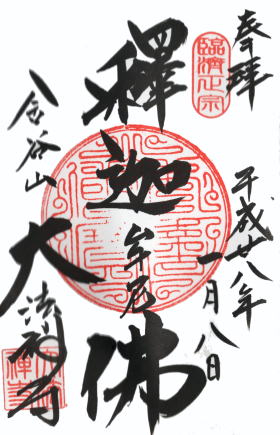 奉拜
平成廿八年
一月八日
臨濟正宗
釋迦牟尼佛
金谷山
大法禅寺